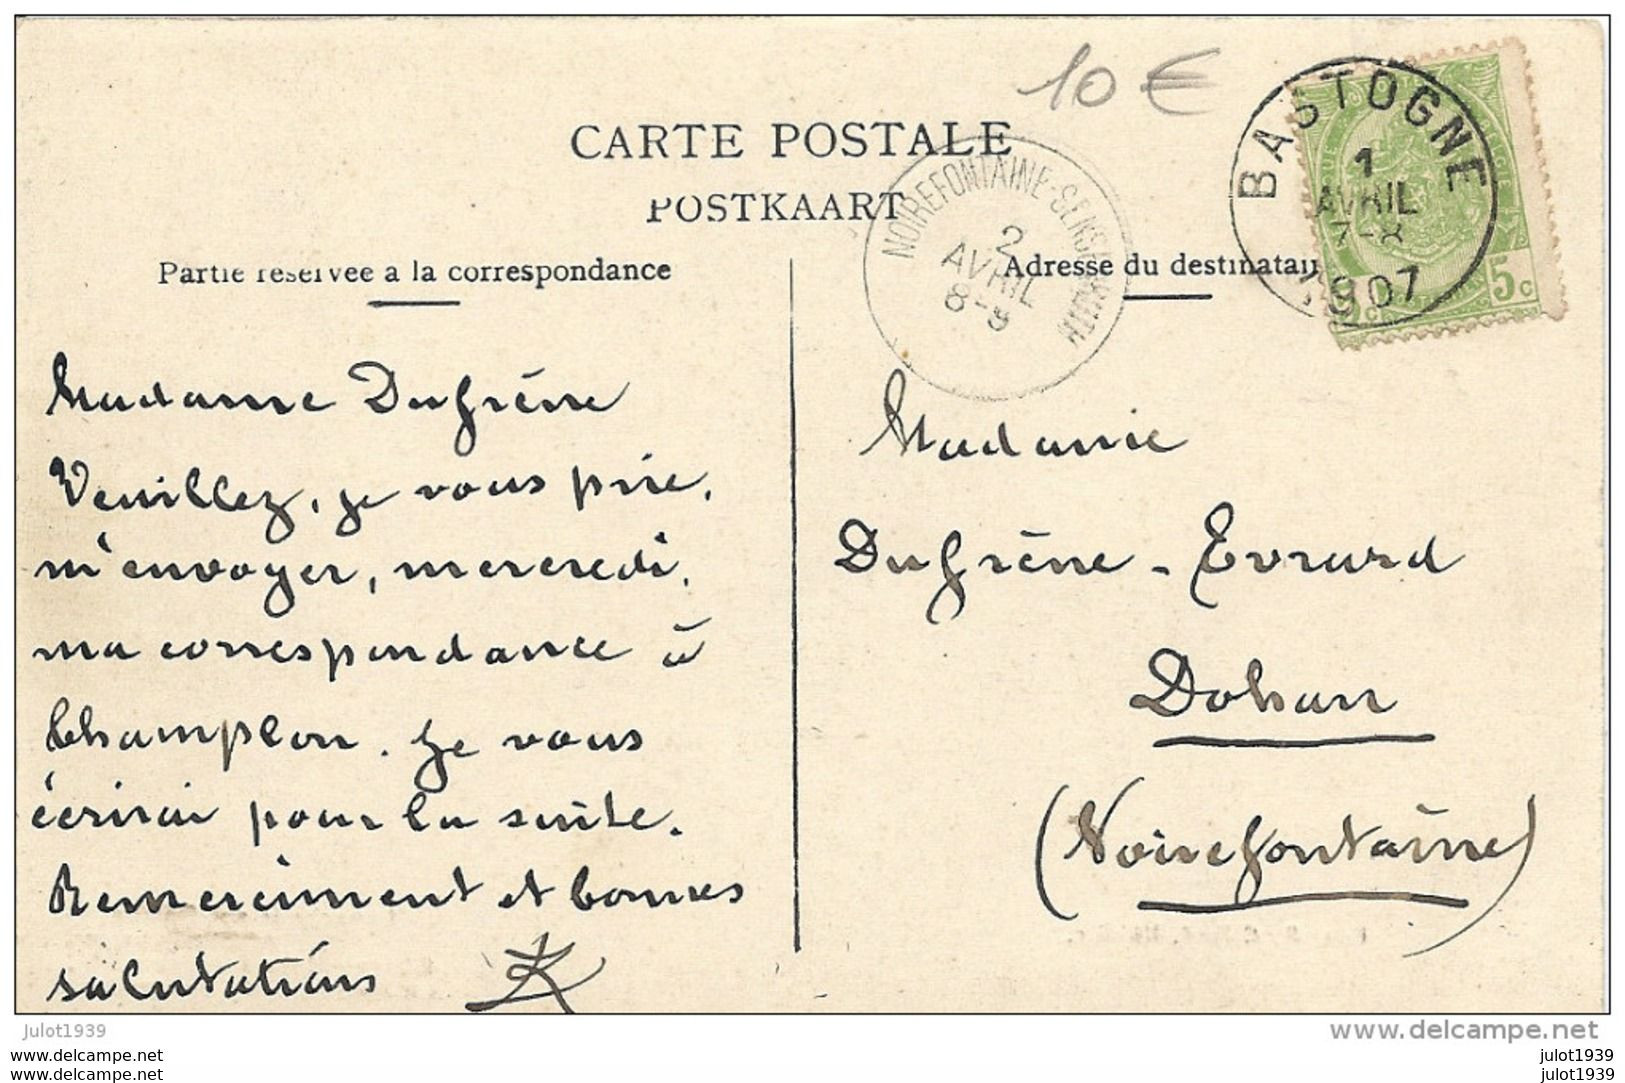 10 €
CARTE POSTALE
POSTKAART
BASTOGNE
1
AVRIL
7-8
1907
5c
NOIREFONTAINE-SENSENRUTH
2
AVRIL
8-9
Partie réservée a la correspondance
Adresse du destinatai
Madame Dufrène
Veuillez, je vous prie,
m'envoyer, mercredi,
ma correspondance à
Champlon. Je vous
écrirai pour la suite.
Remerciment et bonnes
salutations
Madame
Dufrène - Evrard
Dohan
(Noirefontaine)
julot1939
www.delcampe.net
www.delcampe.net
www.delcampe.net
julot1939
julot1939